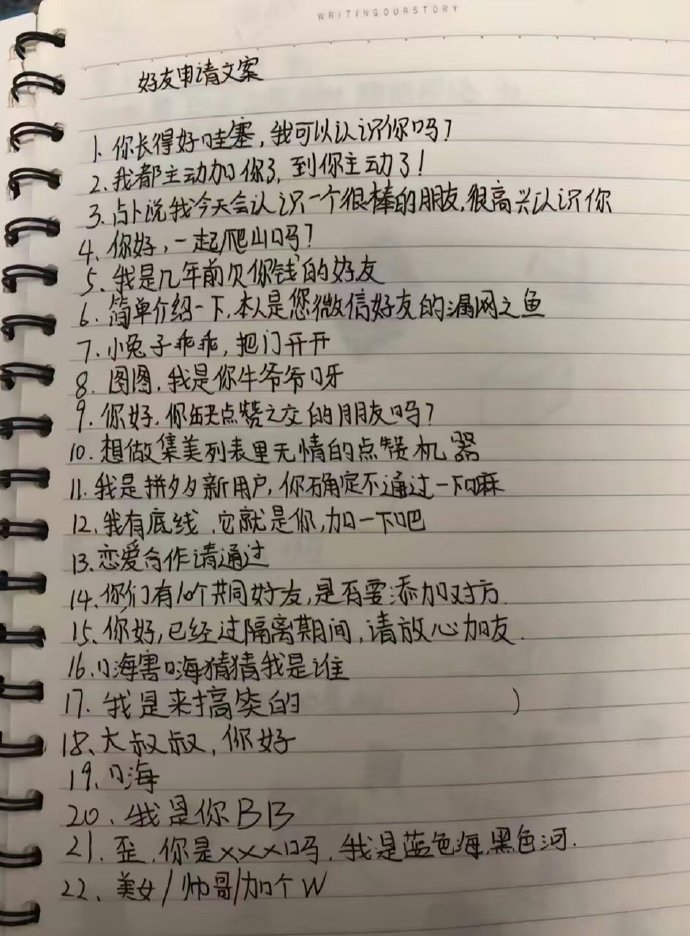 WRITINGOURSTORY
好友申请文案
1. 你长得好哇塞,我可以认识你吗?
2. 我都主动加你了,到你主动了!
3. 占卜说我今天会认识一个很棒的朋友,很高兴认识你
4. 你好,一起爬山吗?
5. 我是几年前欠你钱的好友
6. 简单介绍一下,本人是您微信好友的漏网之鱼
7. 小兔子乖乖,把门开开
8. 图图,我是你牛爷爷呀
9. 你好,你缺点赞之交的朋友吗?
10. 想做集美列表里无情的点赞机器
11. 我是拼夕夕新用户,你确定不通过一下嘛
12. 我有底线,它就是你,加一下吧
13. 恋爱合作请通过
14. 你们有10个共同好友,是否要添加对方.
15. 你好,已经过隔离期间,请放心加友.
16. 嗨害嗨猜猜我是谁
17. 我是来搞笑的 )
18. 大叔叔,你好
19. 嗨
20. 我是你BB
21. 歪,你是xxx吗,我是蓝色海,黑色河.
22. 美女/帅哥/加个W